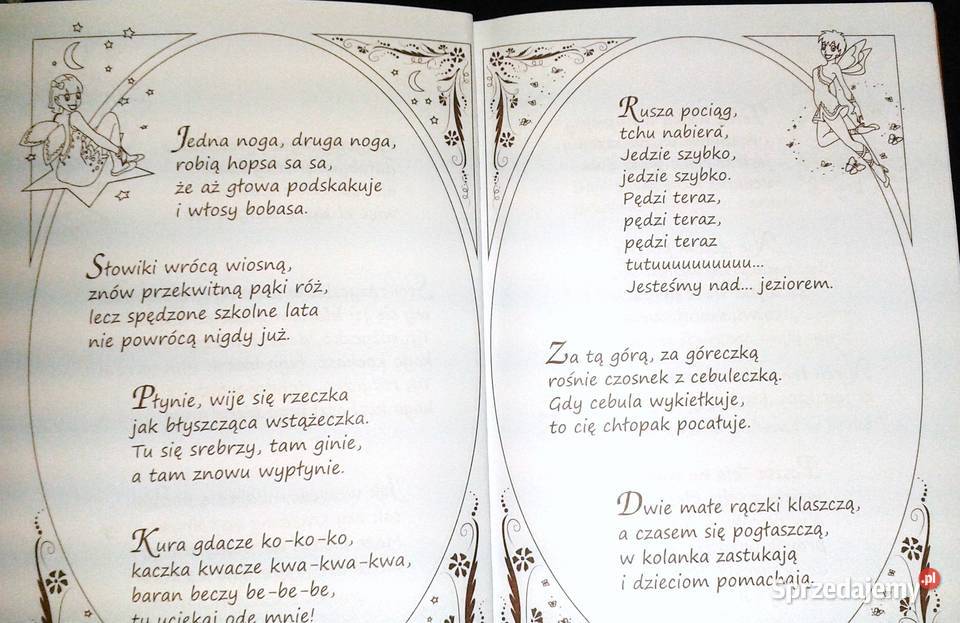 Jedna noga, druga noga,
robią hopsa sa sa,
że aż głowa podskakuje
i włosy bobasa.
Słowiki wrócą wiosną,
znów przekwitną pąki róż,
lecz spędzone szkolne lata
nie powrócą nigdy już.
Płynie, wije się rzeczka
jak błyszcząca wstążeczka.
Tu się srebrzy, tam ginie,
a tam znowu wypłynie.
Kura gdacze ko-ko-ko,
kaczka kwacze kwa-kwa-kwa,
baran beczy be-be-be,
ty uciekaj ode mnie!
Rusza pociąg,
tchu nabiera,
Jedzie szybko,
jedzie szybko.
Pędzi teraz,
pędzi teraz,
pędzi teraz
tutuuuuuuuuuu...
Jesteśmy nad... jeziorem.
Za tą górą, za góreczką
rośnie czosnek z cebuleczką.
Gdy cebula wykiełkuje,
to cię chłopak pocałuje.
Dwie małe rączki klaszczą,
a czasem się pogłaszczą,
w kolanka zastukają
i dzieciom pomachają.
Sprzedajemy.pl